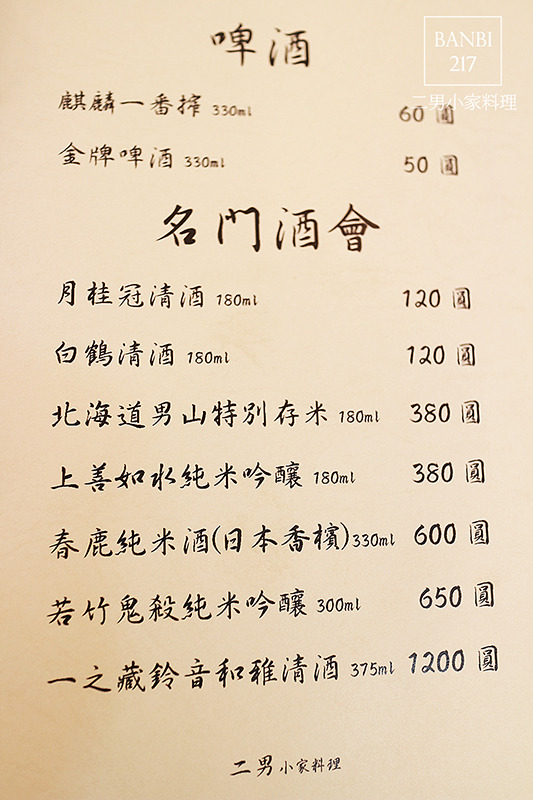 BANBI
217
二男小家料理
啤酒
麒麟一番搾 330ml 60 圓
金牌啤酒 330ml 50 圓
名門酒會
月桂冠清酒 180ml 120 圓
白鶴清酒 180ml 120 圓
北海道男山特別存米 180ml 380 圓
上善如水純米吟釀 180ml 380 圓
春鹿純米酒(日本香檳)330ml 600 圓
若竹鬼殺純米吟釀 300ml 650 圓
一之藏鈴音和雅清酒 375ml 1200 圓
二男小家料理